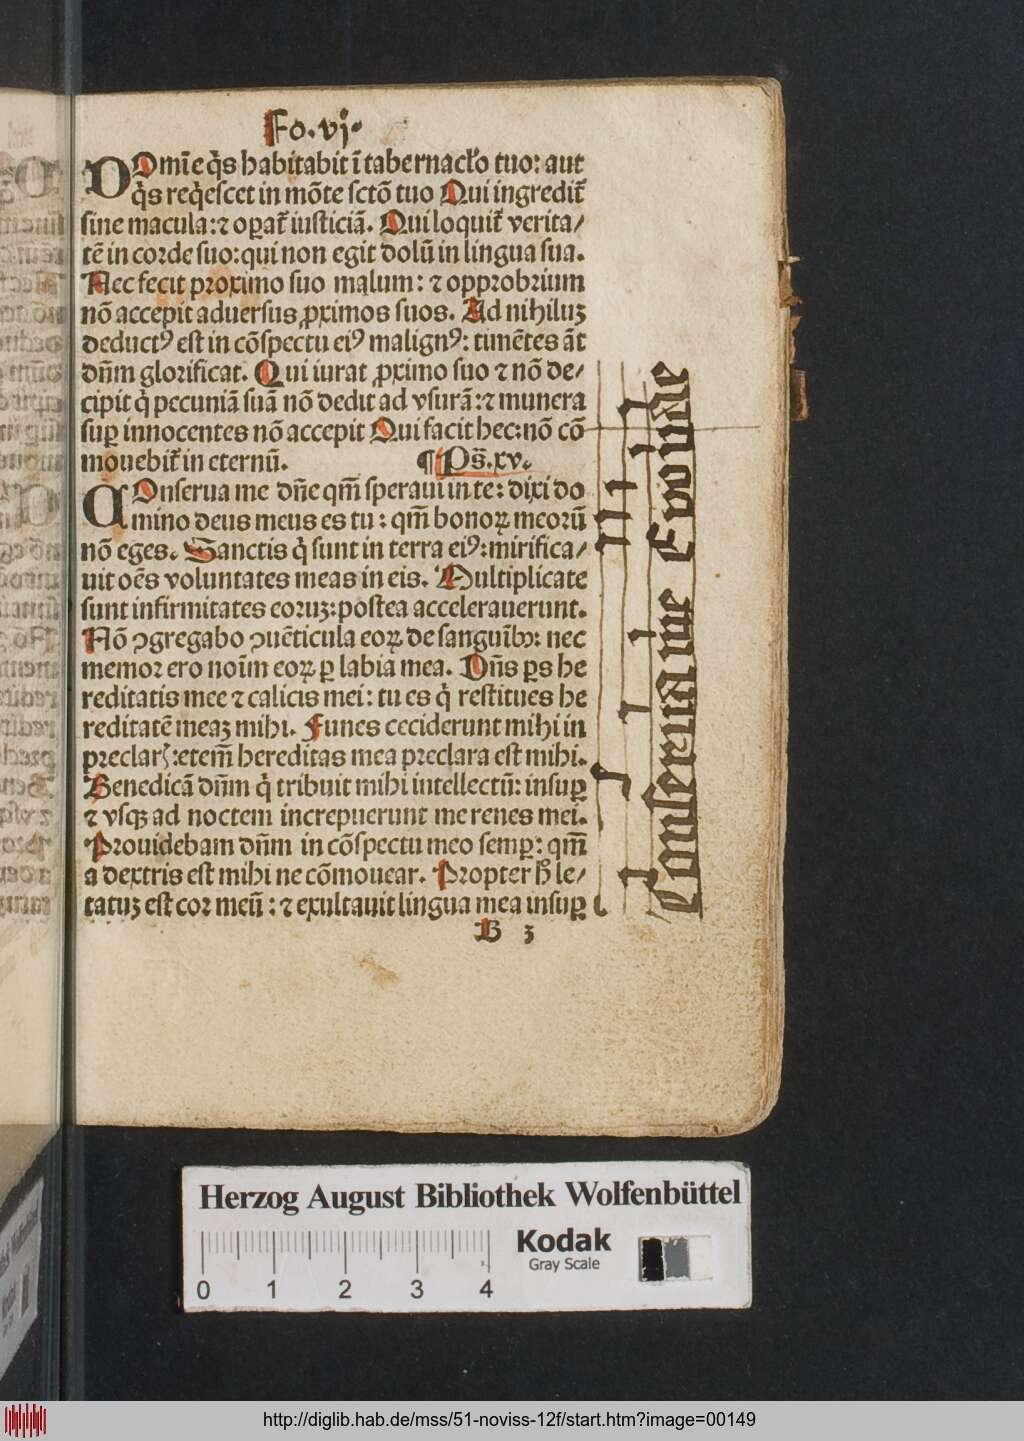 Fo.vj.
DOmīe q̇s habitabit ī tabernaclo tuo: aut
q̇s req̇escet in mōte sctō tuo Qui ingredit᷑
sine macula: ⁊ oꝑat᷑ iusticiā. Qui loquit᷑ verita/
tē in corde suo: qui non egit dolū in lingua sua.
Nec fecit proximo suo malum: ⁊ opprobrium
nō accepit aduersus ꝓximos suos. Ad nihiluꝫ
deductꝰ est in cōspectu eiꝰ malignꝰ: timētes āt
dn̄m glorificat. Qui iurat ꝓximo suo ⁊ nō de/
cipit q̇ pecuniā suā nō dedit ad vsurā: ⁊ munera
suꝑ innocentes nō accepit Qui facit hec: nō cō
mouebit᷑ in eternū.
¶ Ps̄.xv.
COnserua me dn̄e qm̄ speraui in te: dixi do
mino deus meus es tu: qm̄ bonoꝝ meorū
nō eges. Sanctis q̇ sunt in terra eiꝰ: mirifica/
uit oēs voluntates meas in eis. Multiplicate
sunt infirmitates eoruꝫ: postea accelerauerunt.
Nō ꝯgregabo ꝯuēticula eoꝝ de sanguībꝫ: nec
memor ero noīm eoꝝ ꝑ labia mea. Dn̄s ꝑs he
reditatis mee ⁊ calicis mei: tu es q̇ restitues he
reditatē meaꝫ mihi. Funes ceciderunt mihi in
preclarꝭ: etem̄ hereditas mea preclara est mihi.
Benedicā dn̄m q̇ tribuit mihi intellectū: insuꝑ
⁊ vsqꝫ ad noctem increpuerunt me renes mei.
Prouidebam dn̄m in cōspectu meo semꝑ: qm̄
a dextris est mihi ne cōmouear. Propter ħ le/
tatuꝫ est cor meū: ⁊ exultauit lingua mea insuꝑ
B 3
Conserua me Euouae
Herzog August Bibliothek Wolfenbüttel
0 1 2 3 4
Kodak
Gray Scale
http://diglib.hab.de/mss/51-noviss-12f/start.htm?image=00149